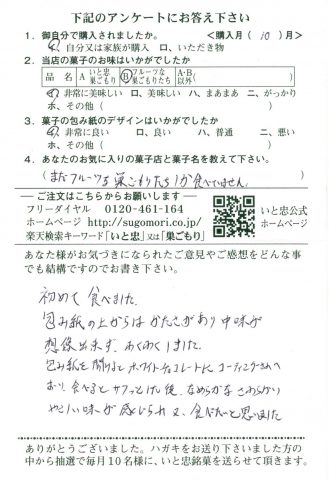 下記のアンケートにお答え下さい
1. 御自分で購入されましたか。 <購入月( 10 )月>
イ. 自分又は家族が購入 ロ. いただき物
2. 当店の菓子のお味はいかがでしたか
品 名 A いと忠巣ごもり B フルーツな巣ごもりたち A・B以外( )
イ. 非常に美味しい ロ. 美味しい ハ. まあまあ ニ. がっかり
ホ. その他( )
3. 菓子の包み紙のデザインはいかがでしたか
イ. 非常に良い ロ. 良い ハ. 普通 ニ. 悪い
ホ. その他( )
4. あなたのお気に入りの菓子店と菓子名を教えて下さい。
(まだフルーツな巣ごもりたちしか食べていません。)
―ご注文はこちらからお願いします―
フリーダイヤル 0120-461-164
ホームページ http://sugomori.co.jp/
楽天検索キーワード「いと忠」又は「巣ごもり」
いと忠公式
ホームページ
あなた様がお気づきになられたご意見やご感想をどんな事
でも結構ですのでお書き下さい。
初めて食べました。
包み紙の上からは かたさがあり 中味が
想像出来ず、わくわくしました。
包み紙を開けるとホワイトチョコレートにコーティングされて
おり、食べるとサクッとした後、なめらかな さわらかい
やさしい味が感じられ 又、食べたいと思いました
ありがとうございました。ハガキをお送り下さいました方の
中から抽選で毎月10名様に、いと忠銘菓を送らせて頂きます。